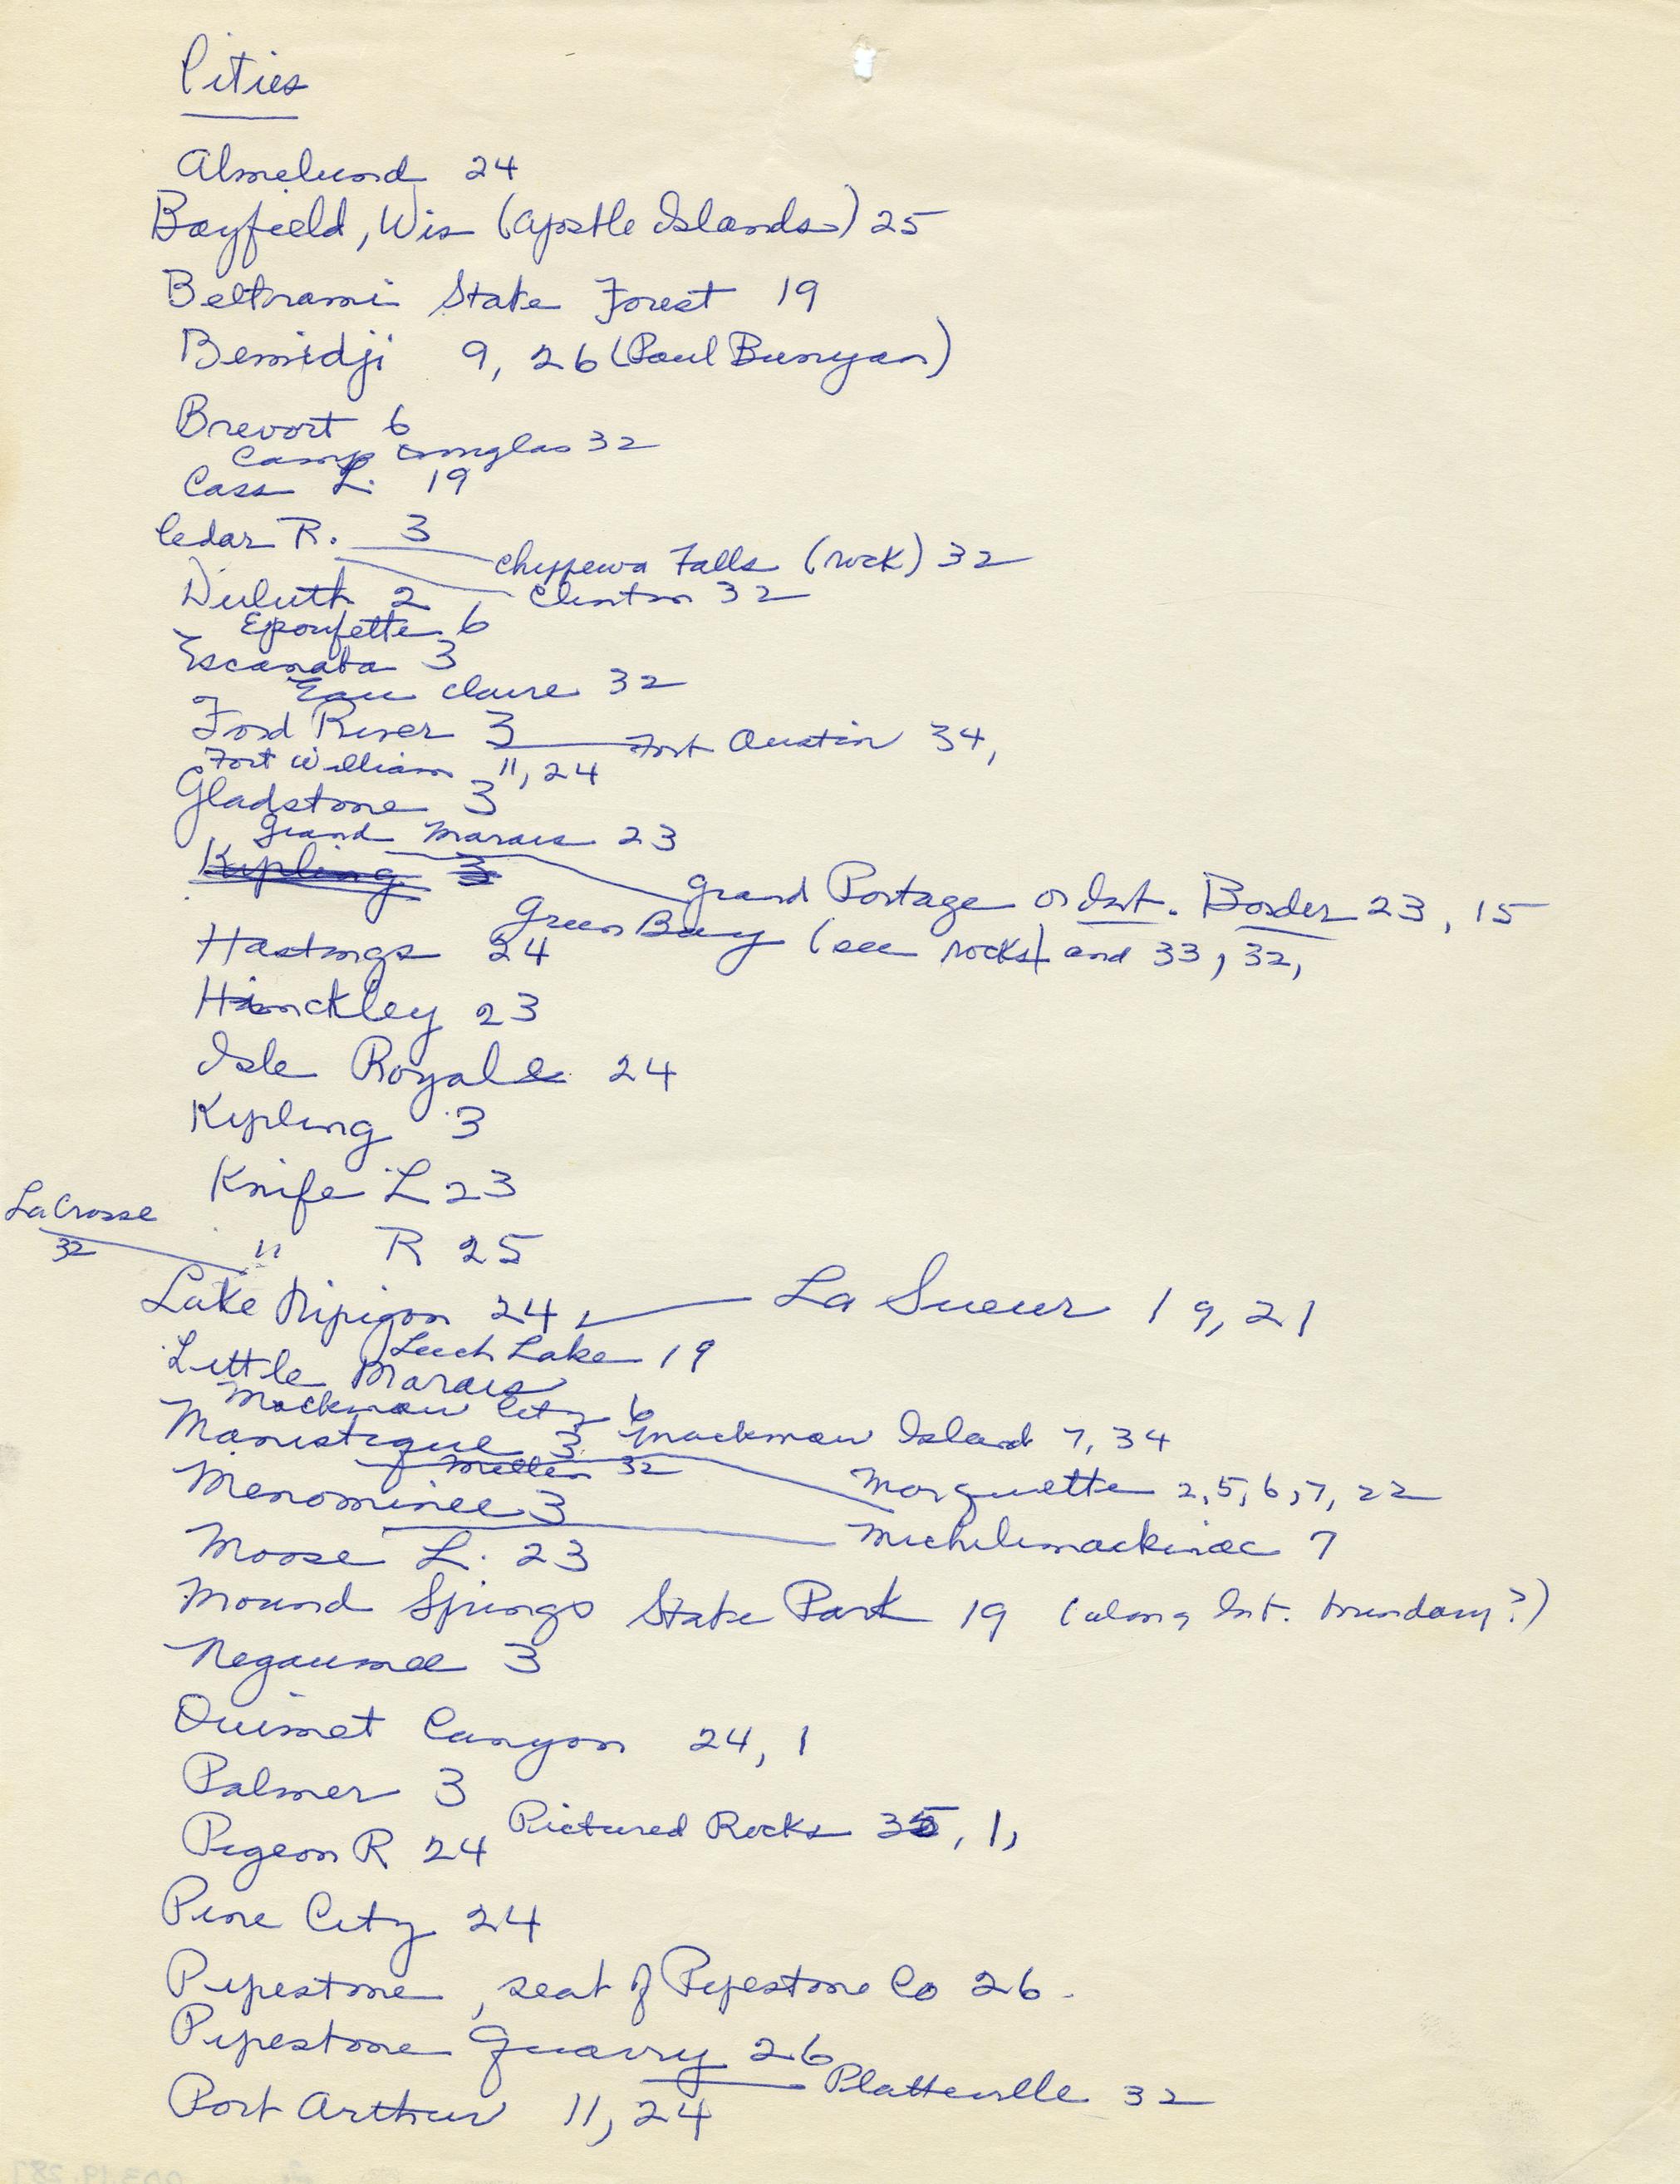 Cities
Almelund 24
Bayfield, Wis (Apostle Islands) 25
Beltrami State Forest 19
Bemidji 9, 26 (Paul Bunyan)
Brevort 6
Camp Douglas 32
Cass L. 19
Cedar R. 3
Chippewa Falls (rock) 32
Duluth 2
Clinton 32
Epoufette 6
Escanaba 3
Eau Claire 32
Ford River 3
Fort Austin 34,
Fort William 11, 24
Gladstone 3
Grand Marais 23
Kipling 3
Grand Portage or Int. Border 23, 15
Green Bay (see rocks) and 33, 32,
Hastings 24
Hinckley 23
Isle Royale 24
Kipling 3
Knife L 23
LaCrosse
32
" R 25
Lake Nipigon 24
La Sueur 19, 21
Leech Lake 19
Little Marais
Mackinaw City 6
Manistique 3
Mackinaw Island 7, 34
32
Marquette 2, 5, 6, 7, 22
Menominee 3
Michilimackinac 7
Moose L. 23
Mound Springs State Park 19 (along Int. boundary?)
Negaunee 3
Ouimet Canyon 24, 1
Palmer 3
Pictured Rocks 35, 1,
Pigeon R 24
Pine City 24
Pipestone, seat of Pipestone Co 26.
Pipestone Quarry 26
Platteville 32
Port Arthur 11, 24